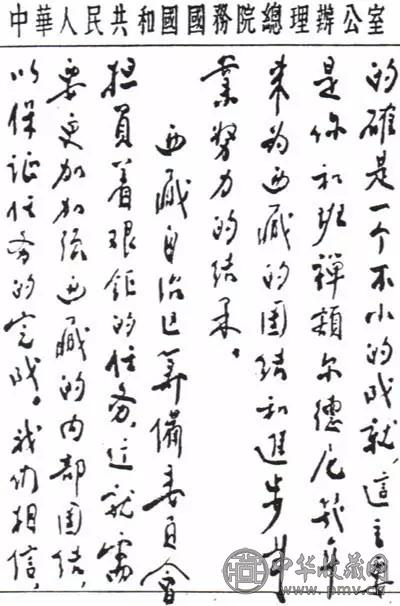 中華人民共和國國務院總理辦公室
的確是一个不小的成就,這主要
是你和班禪額尔德尼幾年
来为西藏的团结和進步事
業努力的结果。
西藏自治区筹備委員會
担負着艰鉅的任务,这就需
要更加加强西藏的内部团结,
以保证任务的完成。我们相信,
中华收藏网
www.pmv.cn